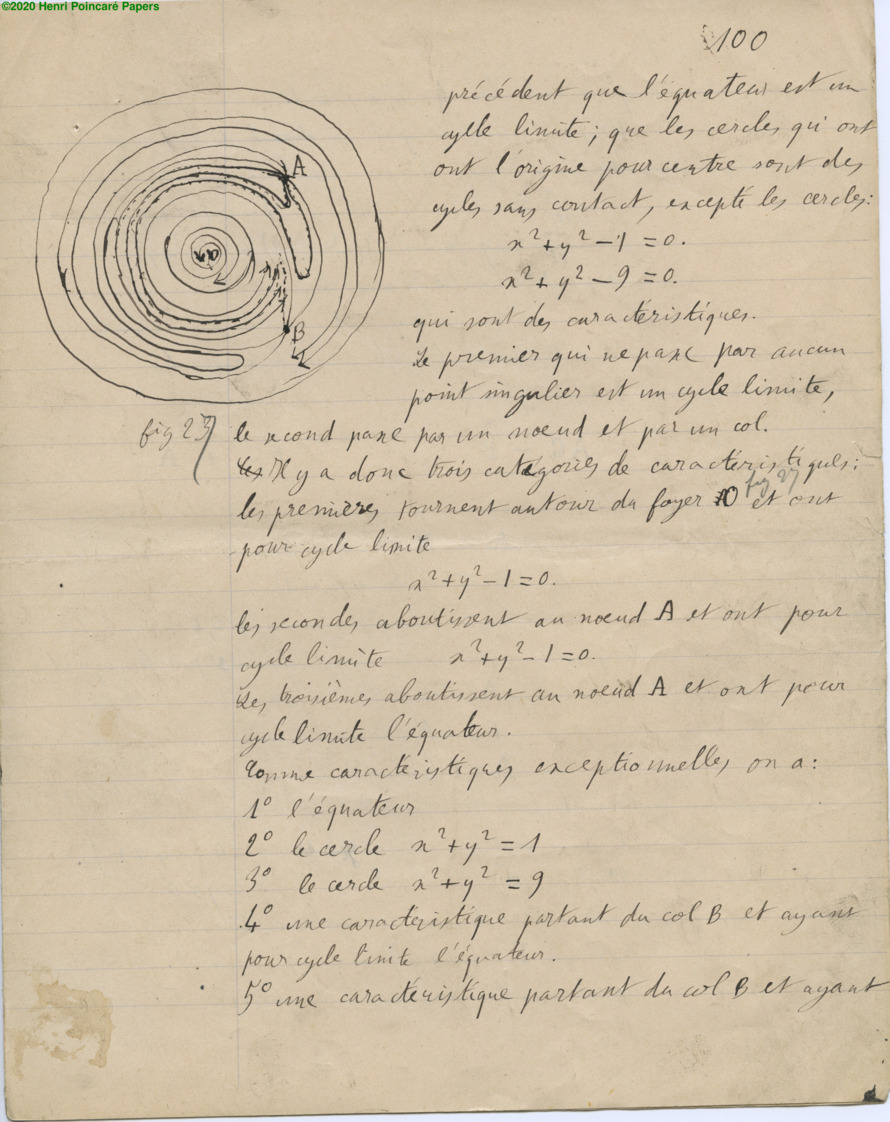 ©2020 Henri Poincaré Papers
100
précédent que l'équateur est un
cycle limite; que les cercles qui ont
ont l'origine pour centre sont des
cycles sans contact, excepté les cercles:
x²+y²-1=0.
x²+y²-9=0.
qui sont des caractéristiques.
Le premier qui ne passe par aucun
point singulier est un cycle limite,
A
O
B
fig 27
le second passe par un noeud et par un col.
Il y a donc trois catégories de caractéristiques:
les premières tournent autour du foyer O fig 27 et ont
pour cycle limite
x²+y²-1=0.
les secondes aboutissent au noeud A et ont pour
cycle limite x²+y²-1=0.
Les troisièmes aboutissent au noeud A et ont pour
cycle limite l'équateur.
Comme caractéristiques exceptionnelles on a:
1° l'équateur
2° le cercle x²+y²=1
3° le cercle x²+y²=9
4° une caractéristique partant du col B et ayant
pour cycle limite l'équateur.
5° une caractéristique partant du col B et ayant